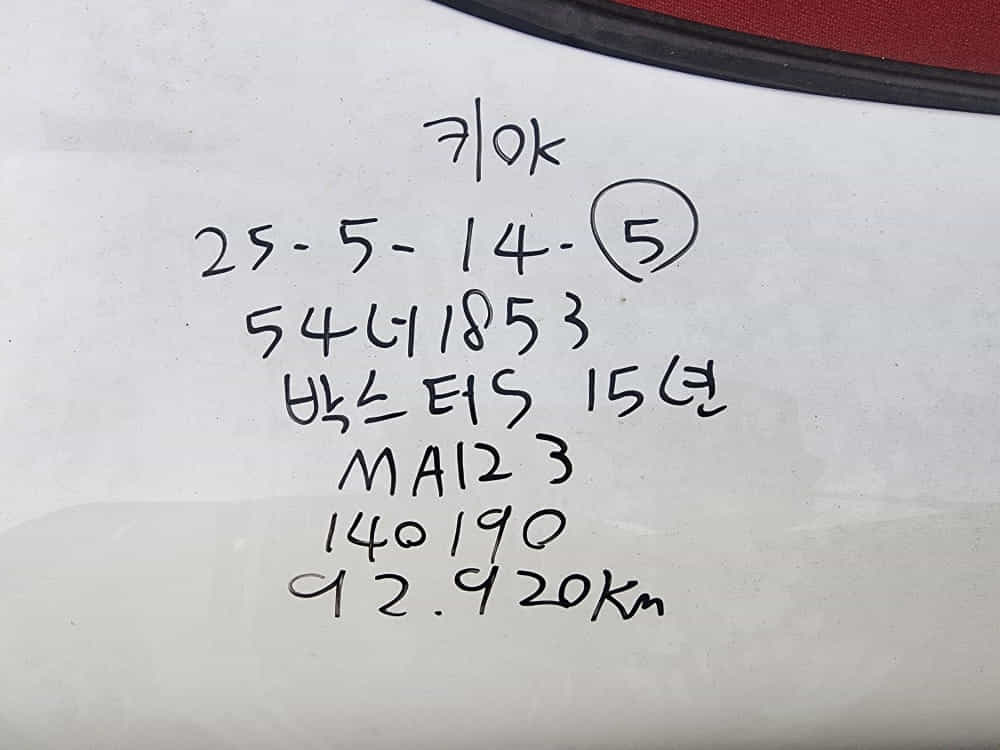 키OK
25-5-14-⑤
54너1853
박스터S 15년
MA123
140190
92.920Km